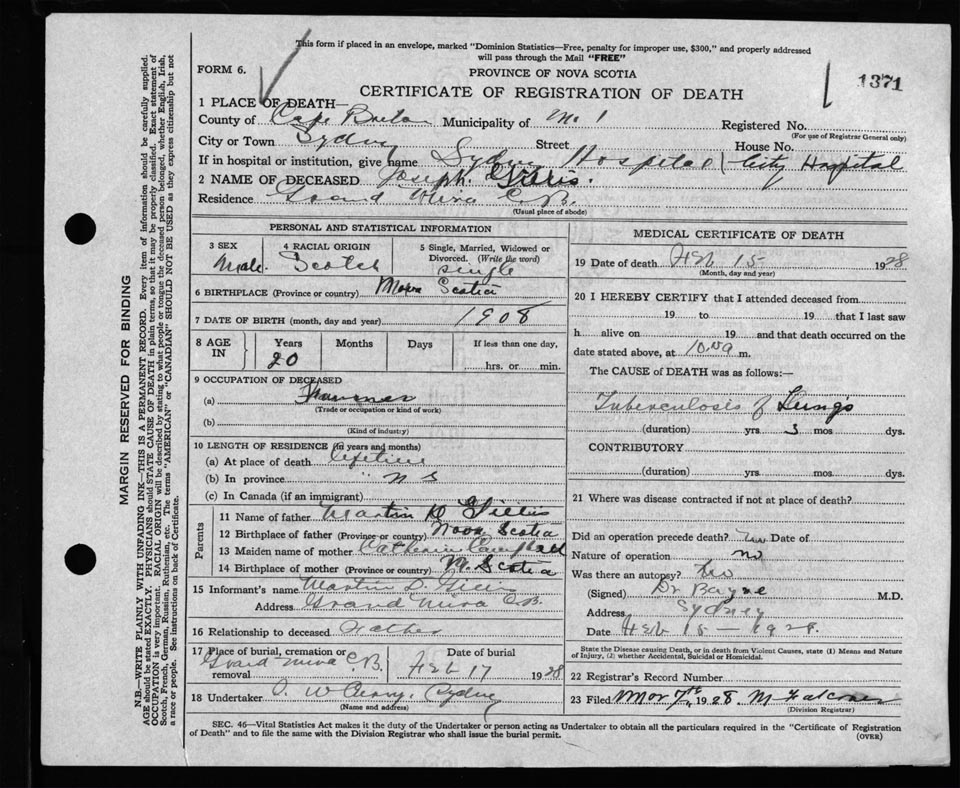 This form if placed in an envelope, marked "Dominion Statistics—Free, penalty for improper use, $300," and properly addressed
will pass through the Mail "FREE"
FORM 6.
PROVINCE OF NOVA SCOTIA
1371
CERTIFICATE OF REGISTRATION OF DEATH
1 PLACE OF DEATH—
County of Cape Breton Municipality of No 1 Registered No.
(For use of Registrar General only)
City or Town Sydney Street House No.
If in hospital or institution, give name Sydney Hospital City Hospital
2 NAME OF DECEASED Joseph Gillis.
Residence Grand Mira C.B.
(Usual place of abode)
PERSONAL AND STATISTICAL INFORMATION
3 SEX 4 RACIAL ORIGIN 5 Single, Married, Widowed or
Divorced. (Write the word)
Male Scotch single
6 BIRTHPLACE (Province or country) Nova Scotia
7 DATE OF BIRTH (month, day and year) 1908
8 AGE IN Years Months Days If less than one day,
20 hrs. or min.
9 OCCUPATION OF DECEASED
(a)
(Trade or occupation or kind of work)
(b)
(Kind of industry)
10 LENGTH OF RESIDENCE (in years and months)
(a) At place of death lifetime
(b) In province " N S
(c) In Canada (if an immigrant)
Parents
11 Name of father Martin D Gillis
12 Birthplace of father (Province or country) Nova Scotia
13 Maiden name of mother Catherine Campbell
14 Birthplace of mother (Province or country) N. Scotia
15 Informant's name Martin D. Gillis
Address Grand Mira C.B.
16 Relationship to deceased Father
17 Place of burial, cremation or removal Date of burial
Grand Mira C.B. Feb 17 1928
18 Undertaker Sydney
(Name and address)
MEDICAL CERTIFICATE OF DEATH
19 Date of death Feb 15 1928
(Month, day and year)
20 I HEREBY CERTIFY that I attended deceased from
19 to 19 that I last saw
h alive on 19 and that death occurred on the
date stated above, at m.
The CAUSE of DEATH was as follows:—
Tuberculosis of Lungs
(duration) yrs 3 mos dys.
CONTRIBUTORY
(duration) yrs. mos. dys.
21 Where was disease contracted if not at place of death?
Did an operation precede death? no Date of
Nature of operation no
Was there an autopsy? no
(Signed) Dr Bayne M.D.
Address Sydney
Date Feb 15 — 1928.
State the Disease causing Death, or in death from Violent Causes, state (1) Means and Nature
of Injury, (2) whether Accidental, Suicidal or Homicidal.
22 Registrar's Record Number
23 Filed Mar 7th 1928. M Falconer
(Division Registrar)
SEC. 46—Vital Statistics Act makes it the duty of the Undertaker or person acting as Undertaker to obtain all the particulars required in the "Certificate of Registration
of Death" and to file the same with the Division Registrar who shall issue the burial permit.
(OVER)
MARGIN RESERVED FOR BINDING
N.B.—WRITE PLAINLY WITH UNFADING INK—THIS IS A PERMANENT RECORD. Every item of information should be carefully supplied.
AGE should be stated EXACTLY. PHYSICIANS should STATE CAUSE OF DEATH in plain terms, so that it may be properly classified. Exact statement of
OCCUPATION is very important. RACIAL ORIGIN will be described by stating to what people or tongue the deceased person belonged, whether English, Irish,
Scotch, French, German, Russian, Ruthenian, etc. The terms "AMERICAN" or "CANADIAN" SHOULD NOT BE USED as they express citizenship but not
a race or people. See instructions on back of Certificate.